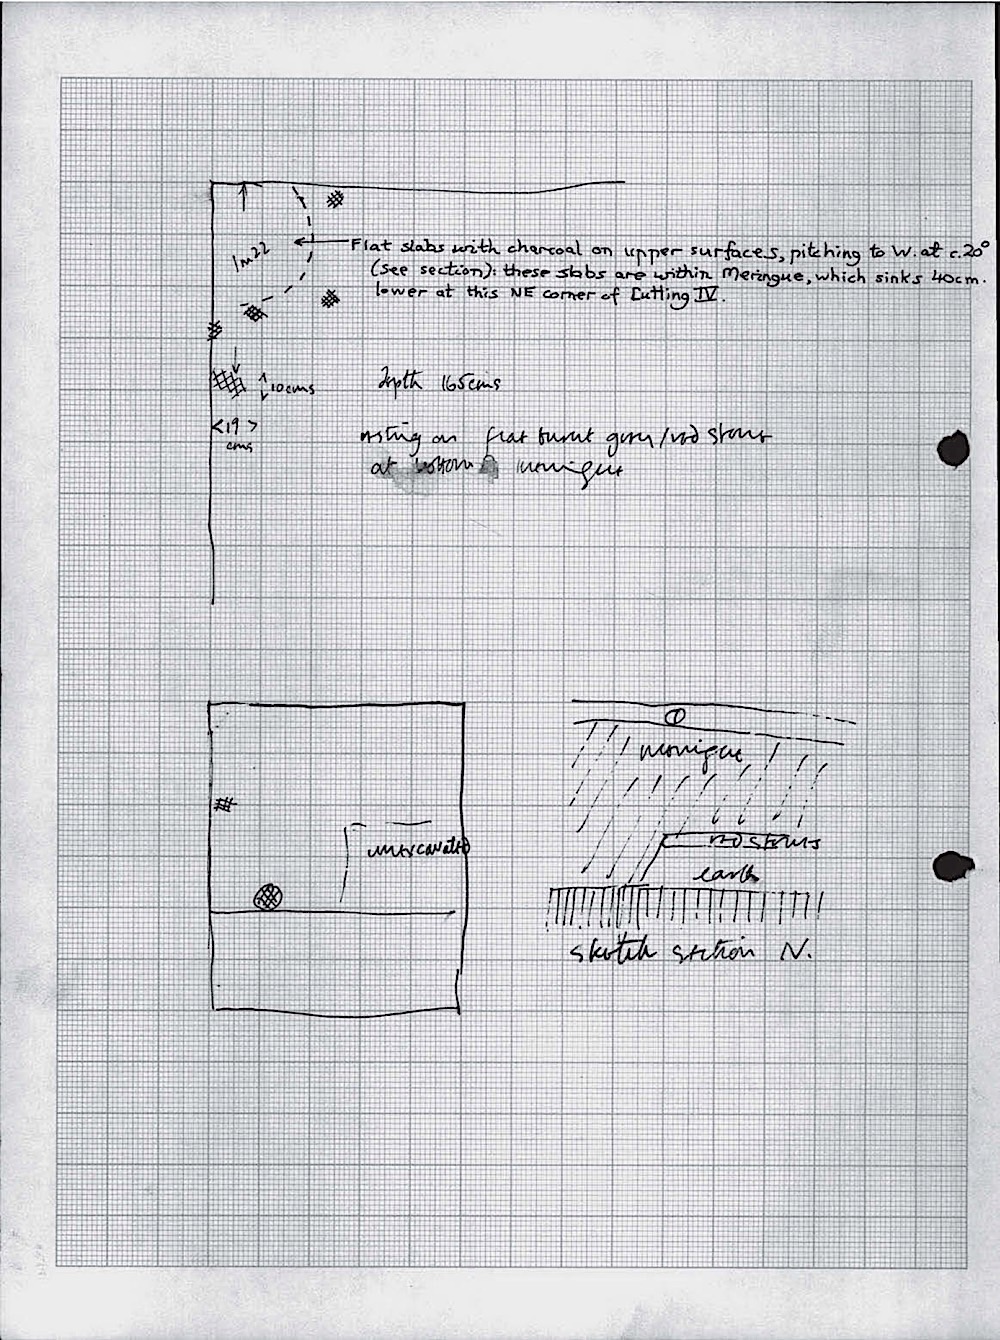 1m22
Flat slabs with charcoal on upper surfaces, pitching to W. at c. 20°
(see section): these slabs are within Meringue, which sinks 40cm.
lower at this NE corner of Cutting IV.
10cms
depth 165cms
<19>
cms
resting on flat burnt green/red stones
at bottom meringue
unexcavated
1
meringue
red stones
earth
sketch section N.